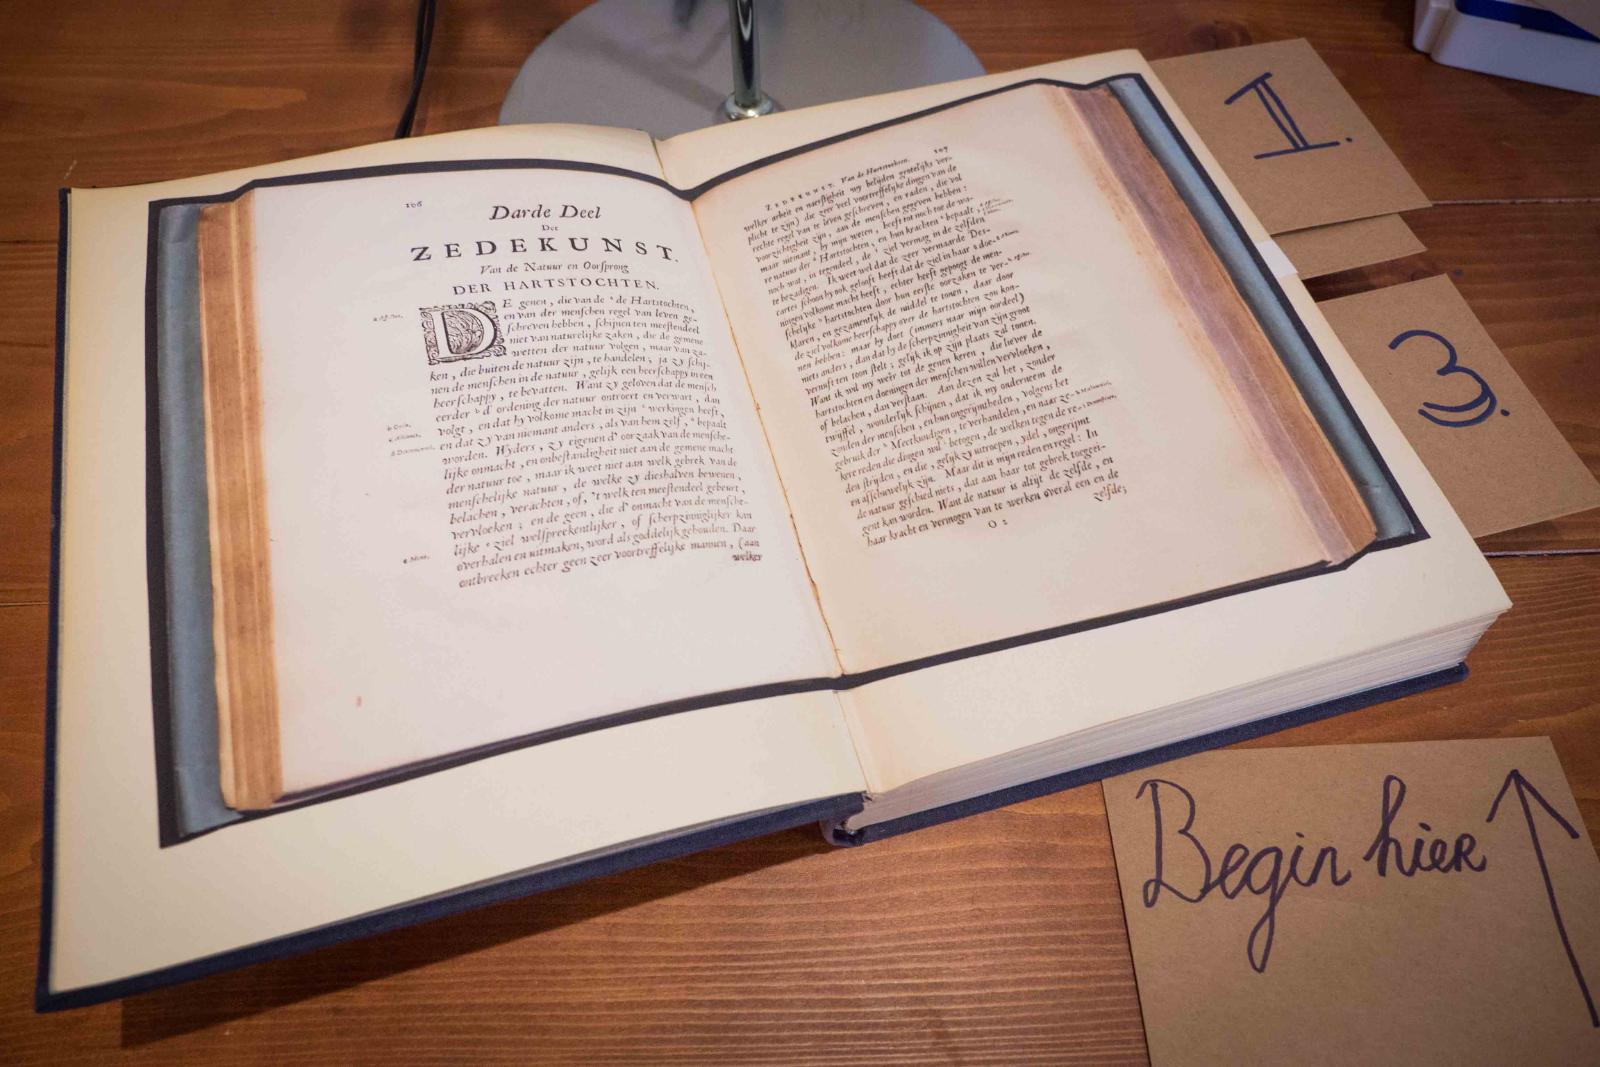 106
Darde Deel
Der
ZEDEKUNST.
Van de Natuur en Oorsprong
DER HARTSTOCHTEN.
DE genen, die van de de Hartstochten,
en van der menschen regel van leven ge-
schreven hebben, schijnen ten meestendeel
niet van naturelijke zaken, die de gemene
wetten der natuur volgen, maar van za-
ken, die buiten de natuur zijn, te handelen; ja zy schij-
nen de menschen in de natuur, gelijk een heerschappy in een
heerschappy, te bevatten. Want zy geloven dat de mensch
eerder d' ordening der natuur ontroert en verwart, dan
volgt, en dat hy volkome macht in zijn werkingen heeft,
en dat zy van niemant anders, als van hem zelf, bepaalt
worden. Wyders, zy eigenen d' oorzaak van de mensche-
lijke onmacht, en onbestandigheit niet aan de gemene macht
der natuur toe, maar ik weet niet aan welk gebrek van de
menschelijke natuur, de welke zy dieshalven bewenen,
belachen, verachten, of, 't welk ten meestendeel gebeurt,
vervloeken; en de geen, die d' onmacht van de mensche-
lijke ziel welspreekentlijker, of scherpzinniglijker kan
overhalen en uitmaken, word als goddelijk gehouden. Daar
ontbreeken echter geen zeer voortreffelijke mannen, (aan
welker
ZEDEKUNST. Van de Hartstochten. 107
welker arbeit en naerstigheit wy belijden grotelijks ver-
plicht te zijn) die zeer veel voortreffelijke dingen van de
rechte regel van te leven geschreven, en raden, die vol
voorzichtigheit zijn, aan de menschen gegeven hebben:
maar niemant, by mijn weten, heeft tot noch toe de wa-
re natuur der Hartstochten, en hun krachten bepaalt,
noch wat, in tegendeel, de ziel vermag in de zelfden
te bezadigen. Ik weet wel dat de zeer vermaarde Des-
cartes, schoon hy ook gelooft heeft dat de ziel in haar doe-
ningen volkome macht heeft, echter heeft gepoogt de men-
schelijke hartstochten door hun eerste oorzaken te ver-
klaren, en gezamentlijk de middel te tonen, daar door
de ziel volkome heerschappy over de hartstochten zou kon-
nen hebben: maar hy doet (immers naar mijn oordeel)
niets anders, dan dat hy de scherpzinnigheit van zijn groot
vernuft ten toon stelt; gelijk ik op zijn plaats zal tonen.
Want ik wil my weêr tot de genen keren, die liever de
hartstochten en doeningen der menschen willen vervloeken,
of belachen, dan verstaan. Aan dezen zal het, zonder
twijffel, wonderlijk schijnen, dat ik my onderneem de
zonden der menschen, en hun ongerijmtheden, volgens het
gebruik der Meetkundigen, te verhandelen, en naar ze-
kere reden die dingen wil betogen, de welken tegen de re-
den strijden, en die, gelijk zy uitroepen, ydel, ongerijmt
en affchuwelijk zijn. Maar dit is mijn reden en regel: In
de natuur geschied niets, dat aan haar tot gebrek toegeei-
gent kan worden. Want de natuur is altijt de zelfde, en
haar kracht en vermogen van te werken overal een en de
O 2
zelfde;
1.
3.
Begin hier